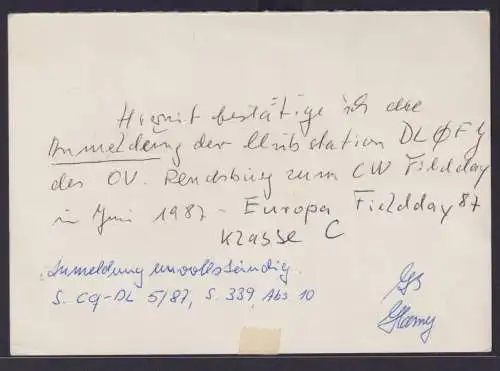 Hiermit bestätige ich die
Anmeldung der Clubstation DLØFY
des OV. Rendsburg zum CW Fieldday
im Juni 1987 - Europa Fieldday 87
Klasse C
Anmeldung unvollständig.
S. CQ-DL 5/87, S. 339, Abs 10